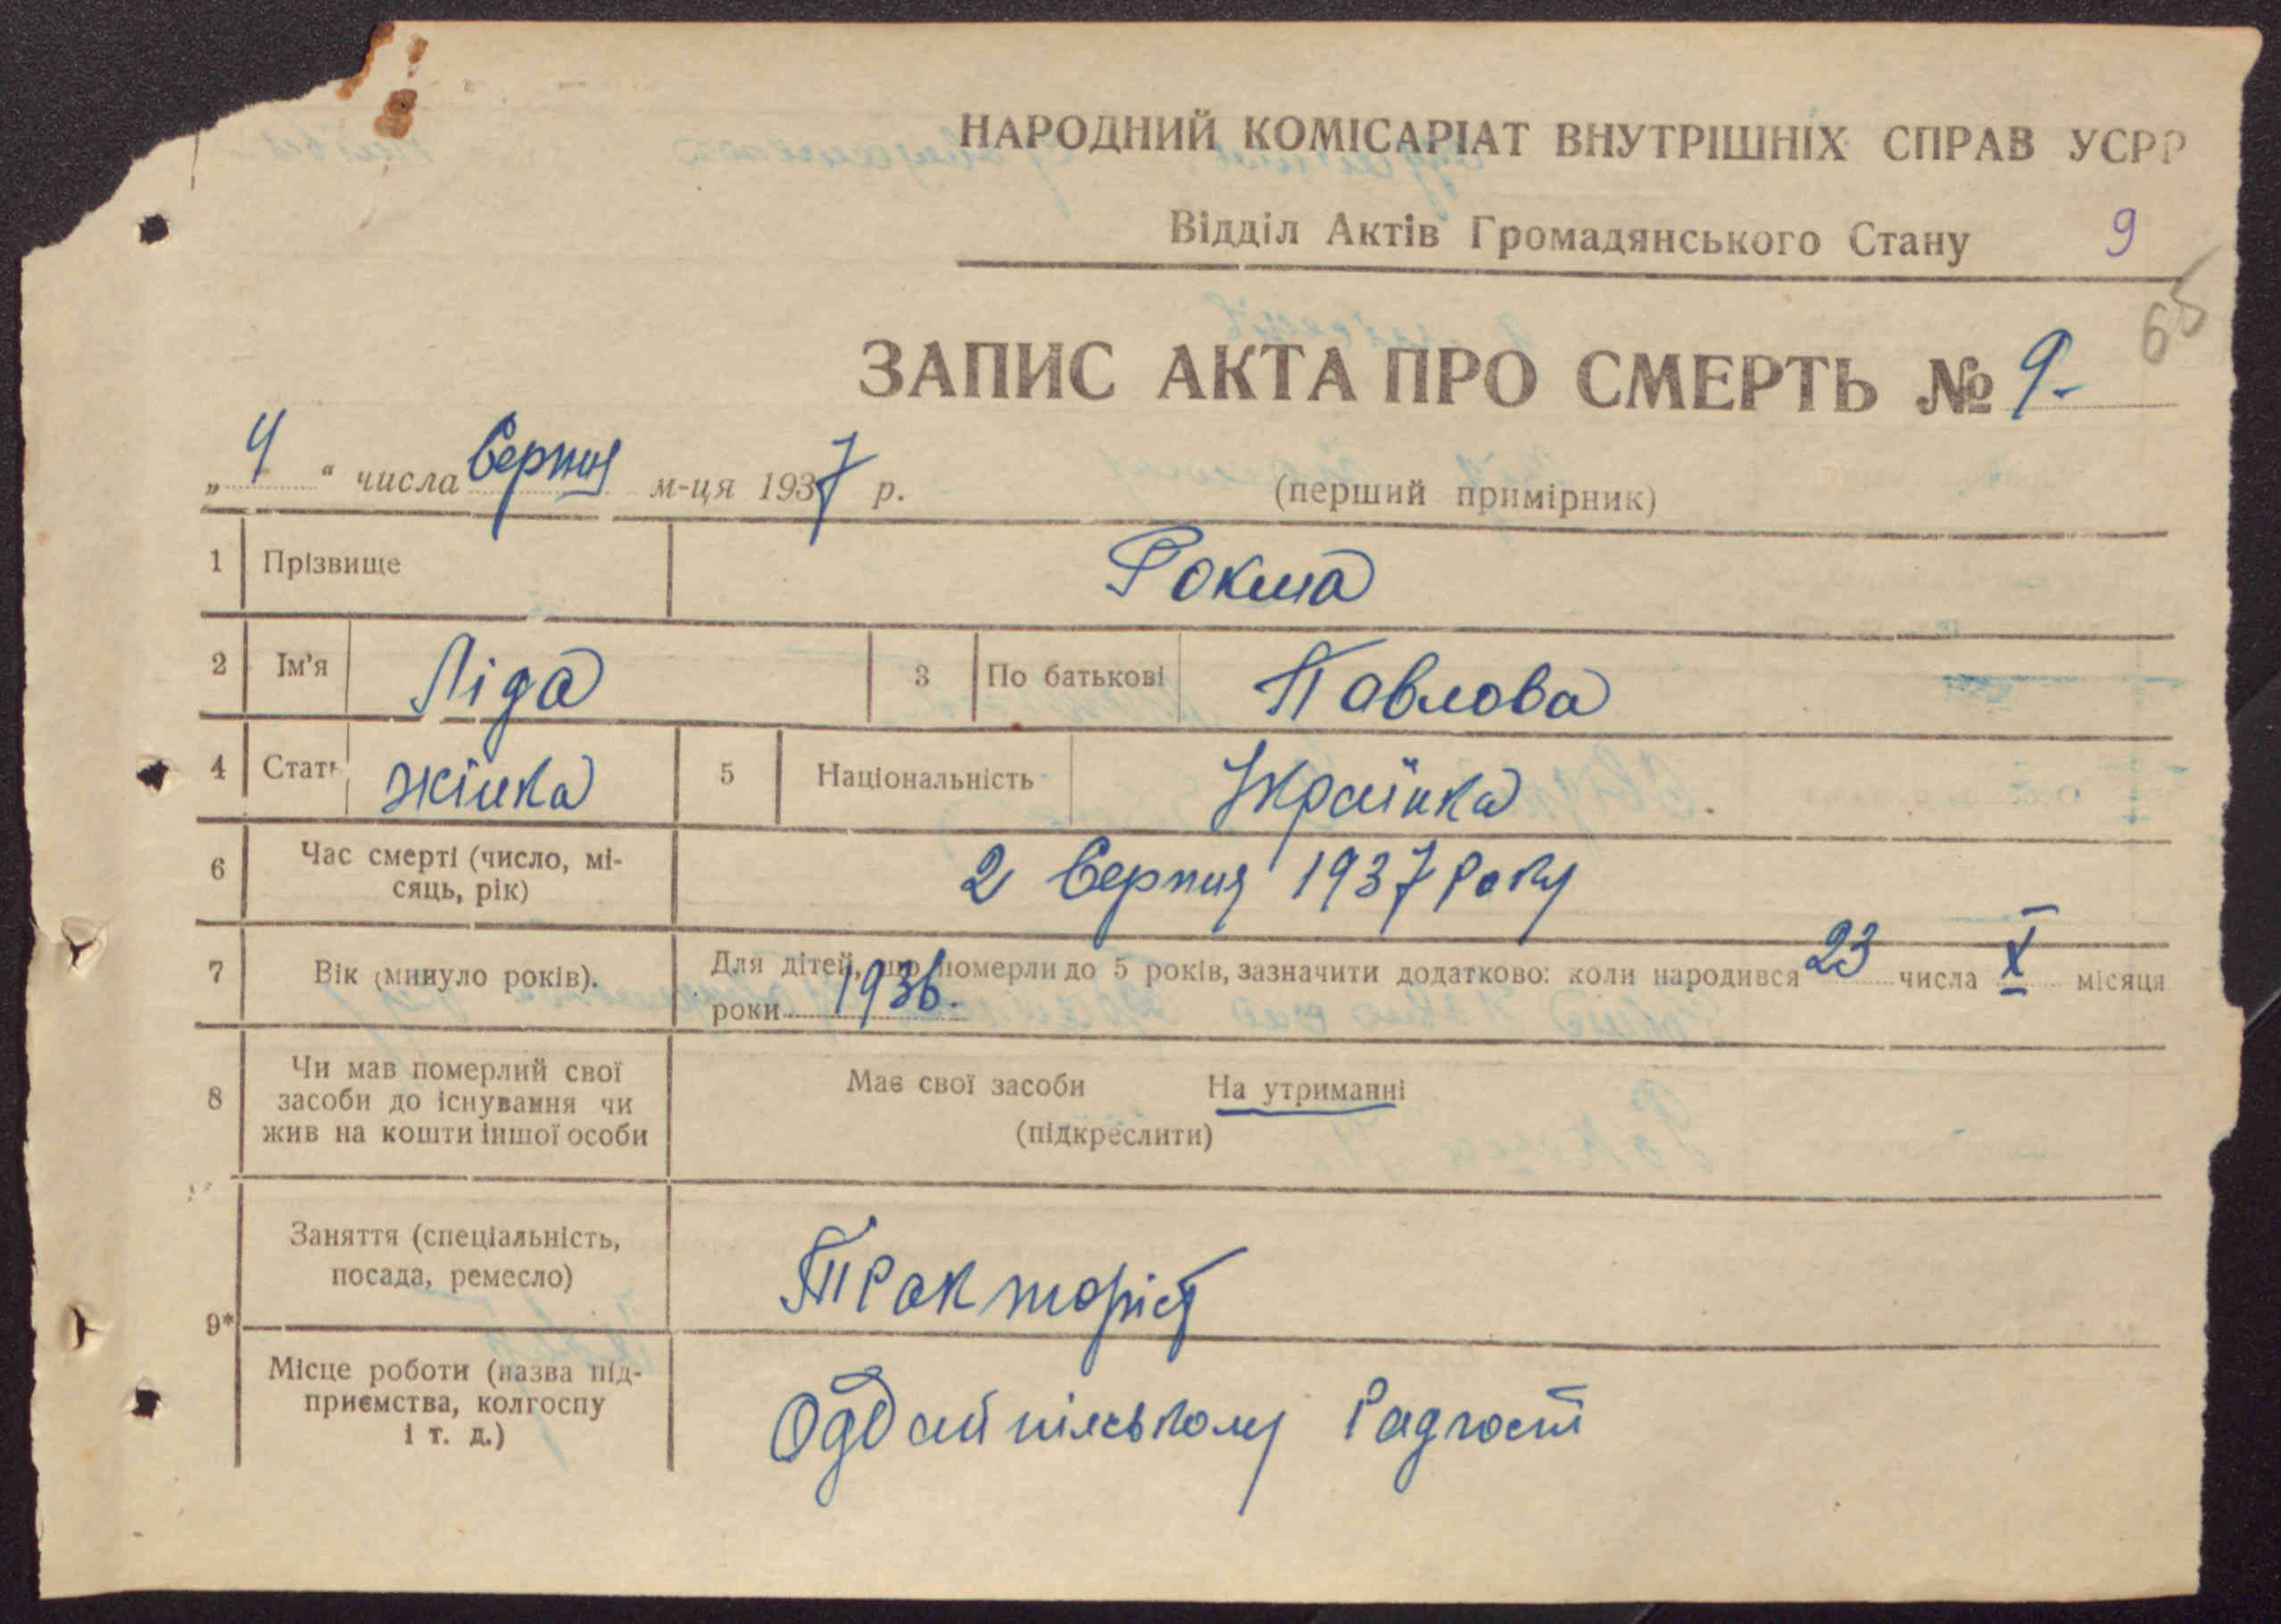 НАРОДНИЙ КОМІСАРІАТ ВНУТРІШНІХ СПРАВ УСРР
Відділ Актів Громадянського Стану 9
65
ЗАПИС АКТА ПРО СМЕРТЬ № 9-
„4“ числа Серпня м-ця 1937 р. (перший примірник)
1 Прізвище Рокша
2 Ім'я Ліда 3 По батькові Павлова
4 Стать жінка 5 Національність Українка
6 Час смерті (число, мі-
сяць, рік) 2 Серпня 1937 Року
7 Вік (минуло років). Для дітей, що померли до 5 років, зазначити додатково: коли народився 23 числа X місяця
роки 1936.
8 Чи мав померлий свої
засоби до існування чи
жив на кошти іншої особи
Має свої засоби На утриманні
(підкреслити)
9* Заняття (спеціальність,
посада, ремесло) Тракторіст
Місце роботи (назва під-
приємства, колгоспу
і т. д.) Радгосп